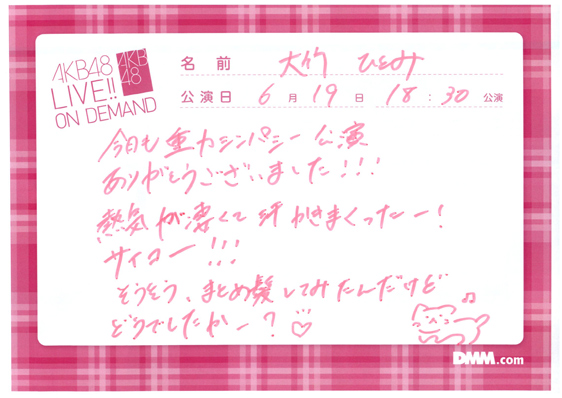 AKB48
LIVE!!
ON DEMAND
AKB
48
名前 大竹 ひとみ
公演日 6月19日 18:30公演
今日も重力シンパシー公演
ありがとうございました!!!
熱気が凄くて汗かきまくったー!
サイコー!!!
そうそう、まとめ髪してみたんだけど
どうでしたかー?♡
♫
DMM.com